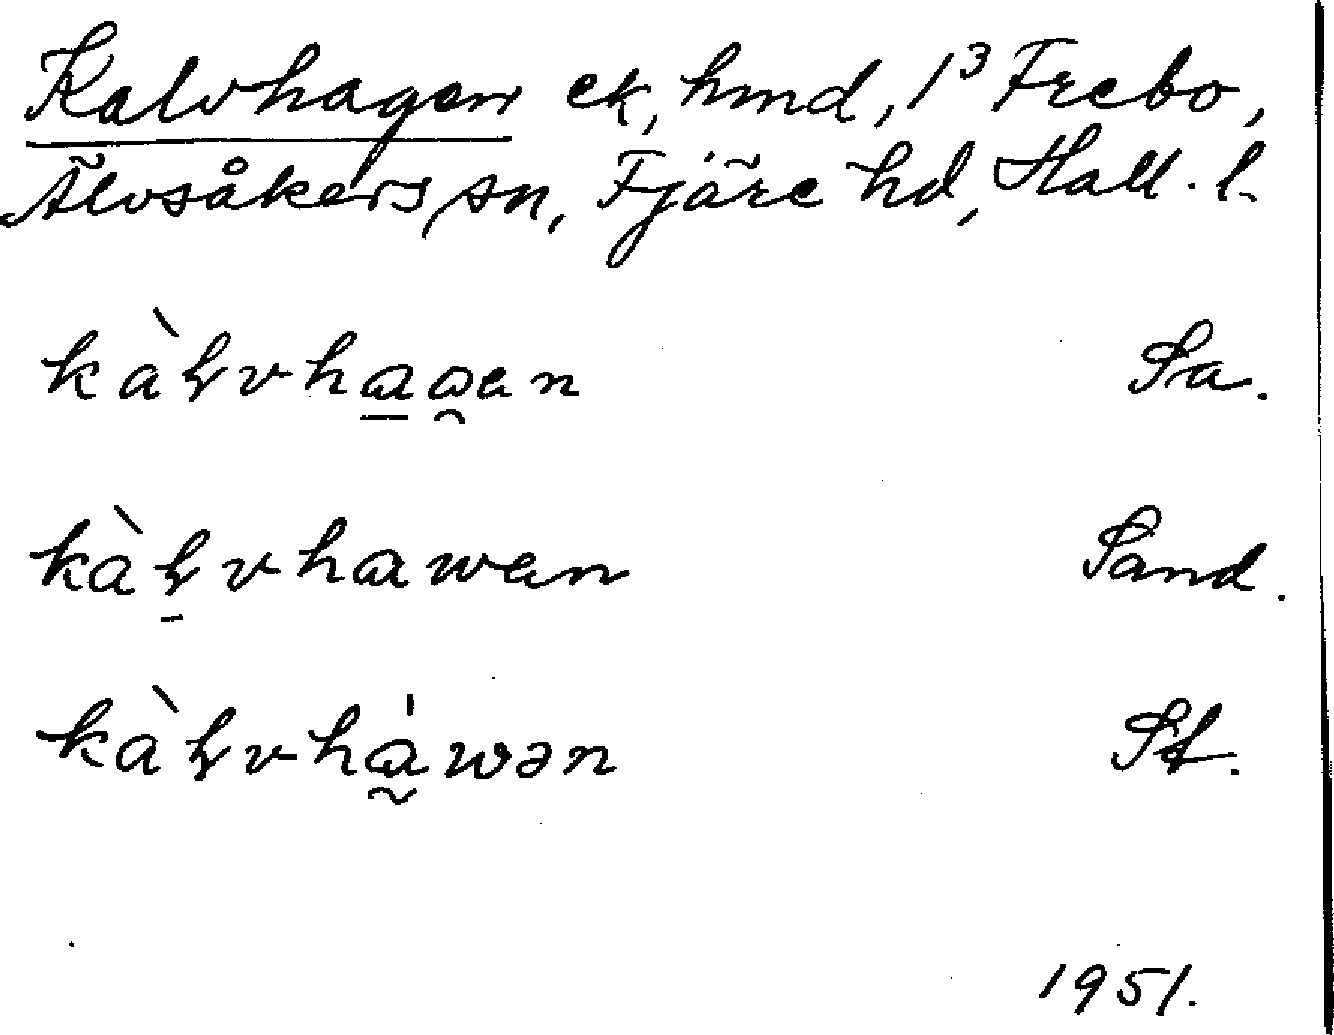 Kalvhagen ek, hmd, 1³ Frebo,
Älvsåkers sn, Fjäre hd, Hall. l.
kàɽvhagen Sa.
kàɽvhawen Sand.
kàɽvhàwən St.
1951.